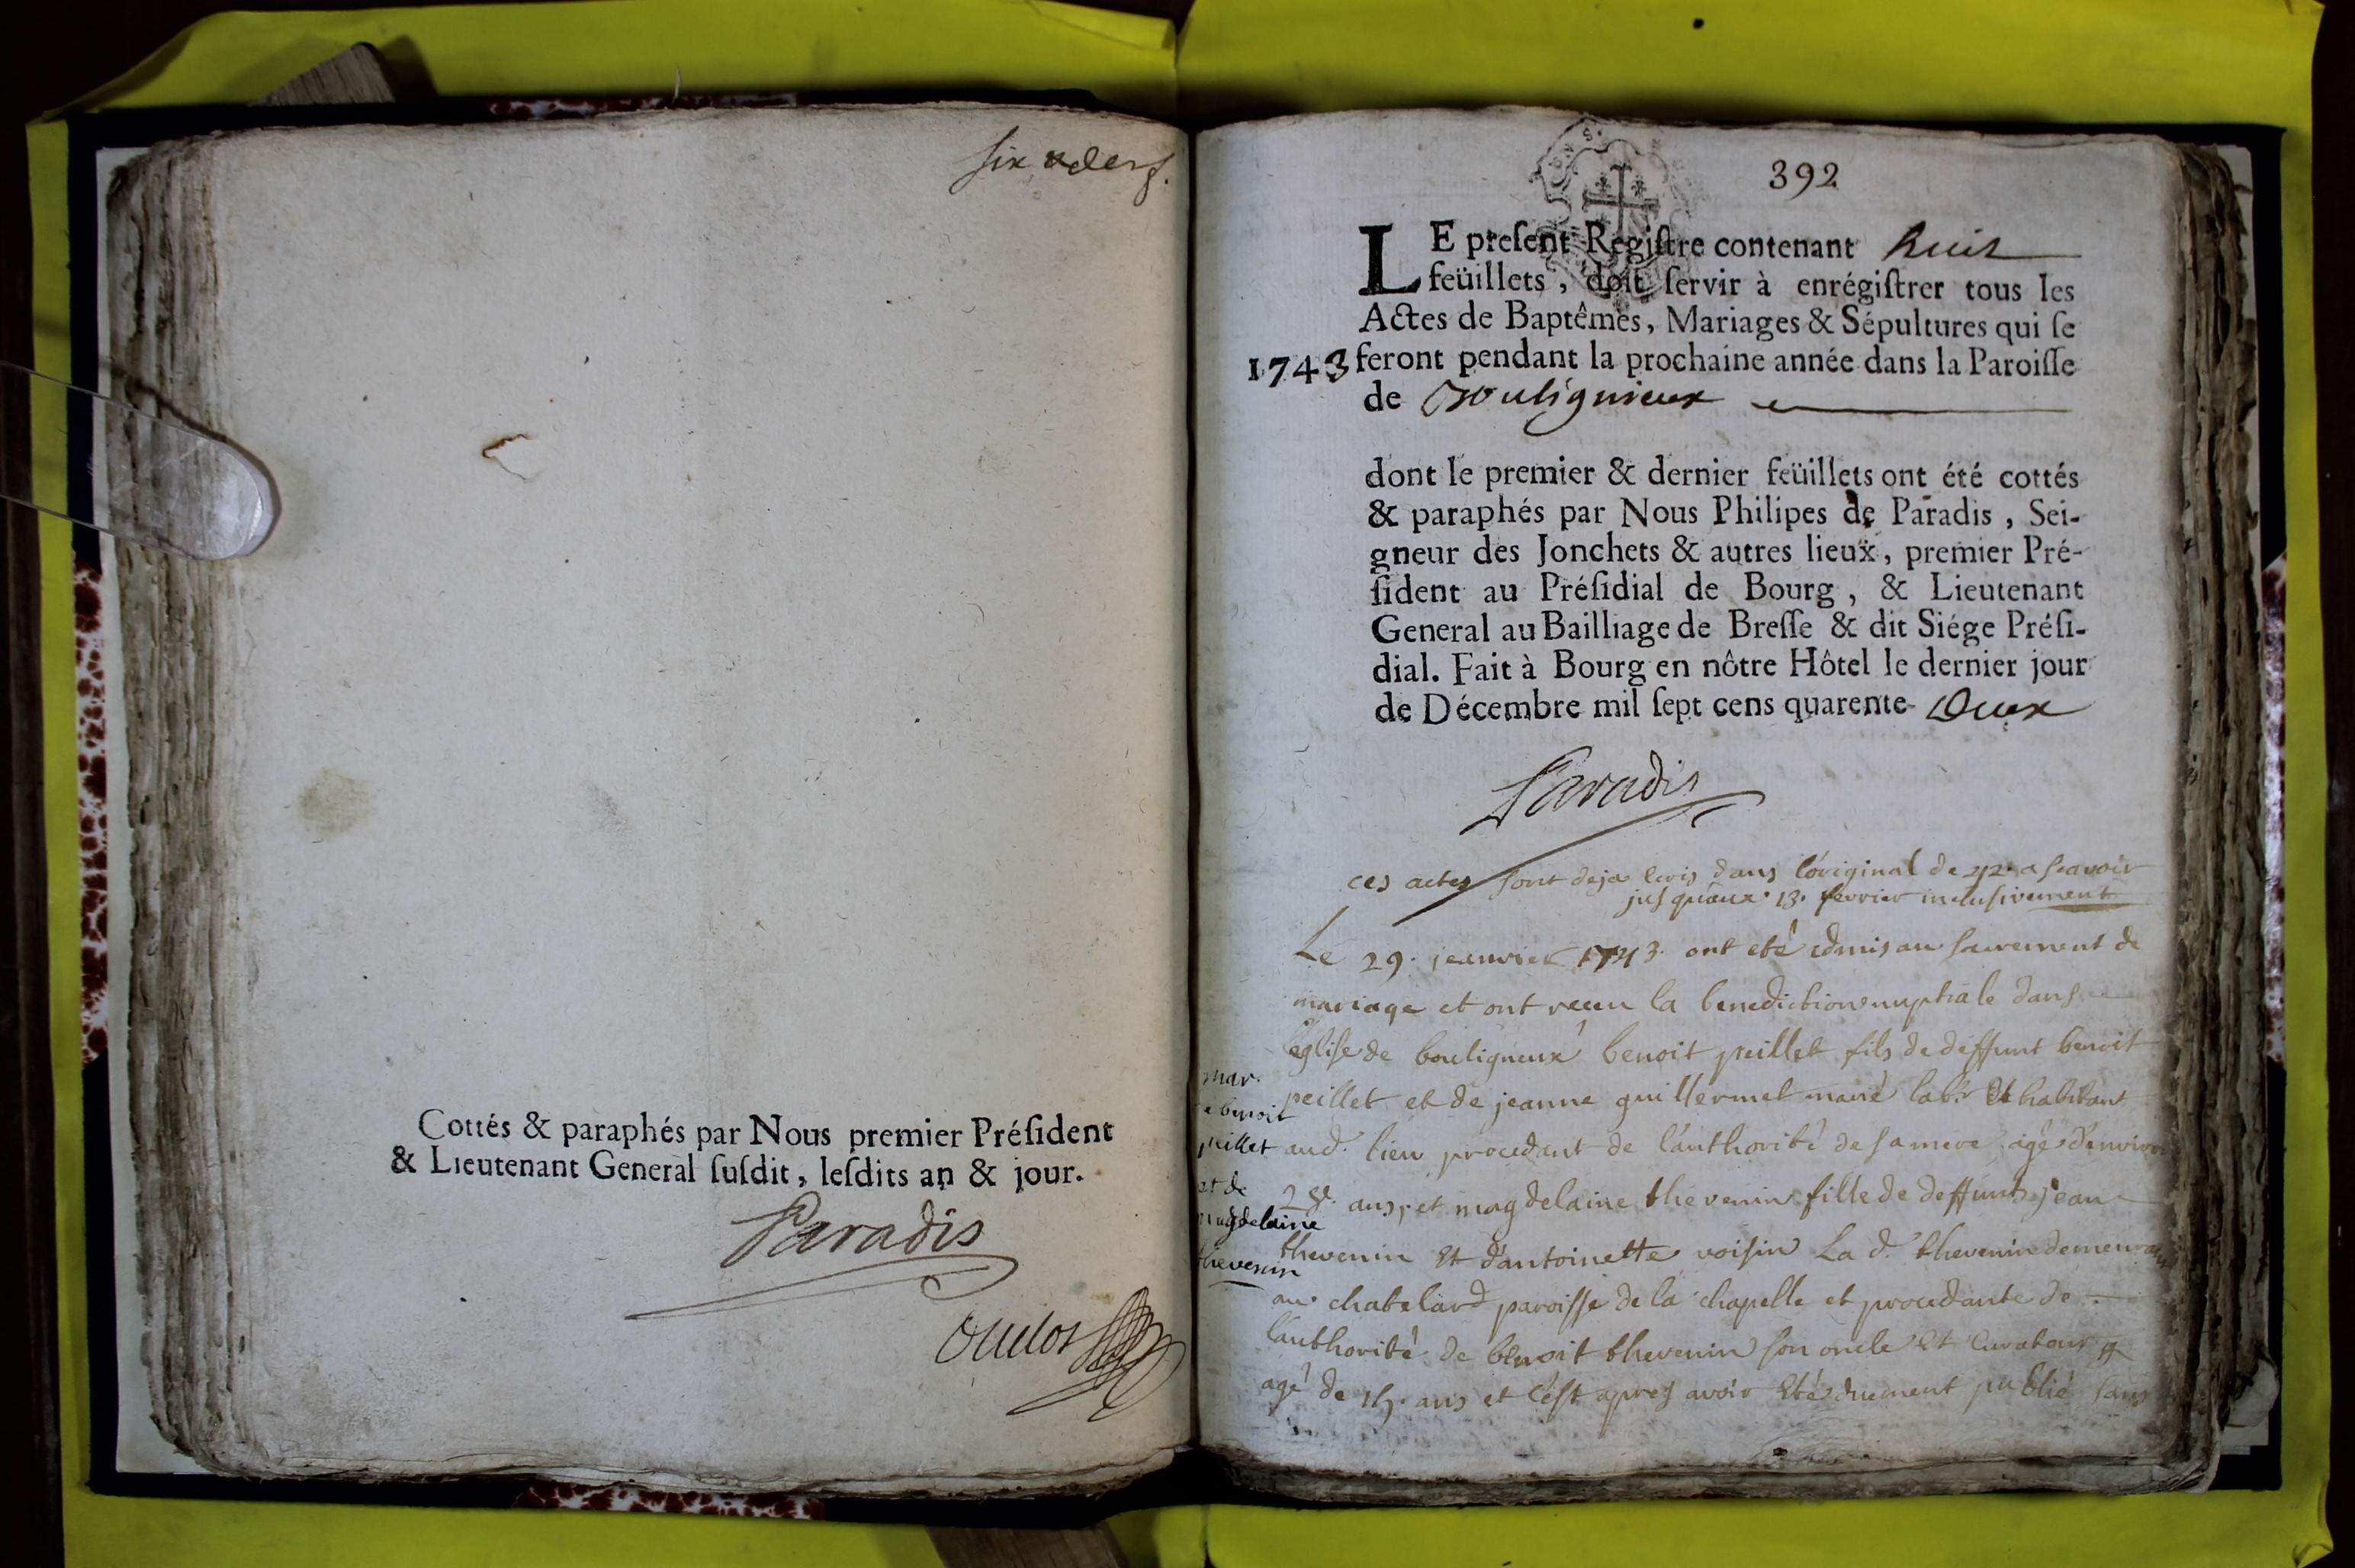 six & der.
Cottés & paraphés par Nous premier Président
& Lieutenant General ſuſdit, leſdits an & jour.
Paradis
392
LE preſent Regiſtre contenant huit
feüillets, doit ſervir à enrégiſtrer tous les
Actes de Baptêmes, Mariages & Sépultures qui ſe
1743 feront pendant la prochaine année dans la Paroiſſe
de Boulignieux
dont le premier & dernier feüillets ont été cottés
& paraphés par Nous Philipes de Paradis, Sei-
gneur des Jonchets & autres lieux, premier Pré-
ſident au Préſidial de Bourg, & Lieutenant
General au Bailliage de Breſſe & dit Siége Préſi-
dial. Fait à Bourg en nôtre Hôtel le dernier jour
de Décembre mil ſept cens quarente- Deux
Paradis
ces actes sont deja ecris dans l'original de 42. a scavoir
jusqu'aux 13. fevrier inclusivement
Le 29. jeanvier 1743. ont eté admis au sacrement de
mariage et ont receu la benediction nuptiale dans
l'eglise de bouligneux benoit peillet fils de deffunt benoit
peillet et de jeanne guillermet marié lab.r et habitant
aud. lieu procedant de l'authorité de sa mere agé d'environ
ans, et magdelaine thevenin fille de deffunts jean
thevenin et d'antoinette voisin La d. thevenin demeurante
au chatelard paroisse de la chapelle et procedante de
l'authorité de benoit thevenin son oncle et curateur
agé de ans et c'est apres avoir eté duement publié sans
mar.
de benoit
peillet
et de
magdelaine
thevenin